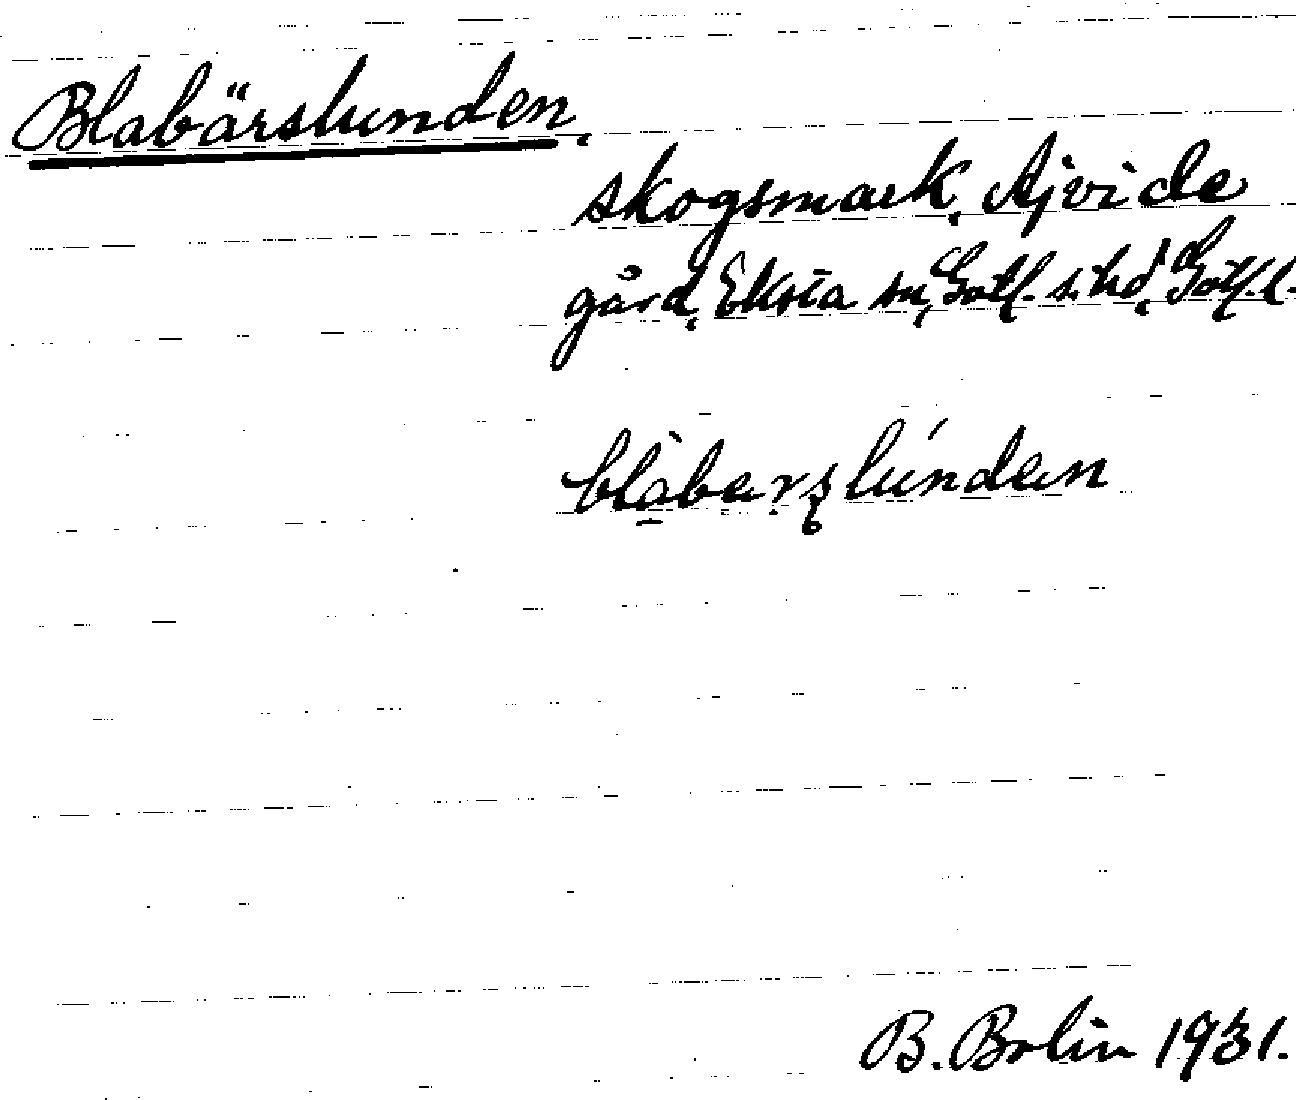 Blabärslunden,
skogsmark, Ajvide
gård, Eksta sn, Gotl. s. hd, Gotl. l.
blàbarslúndan
B. Bolin 1931.